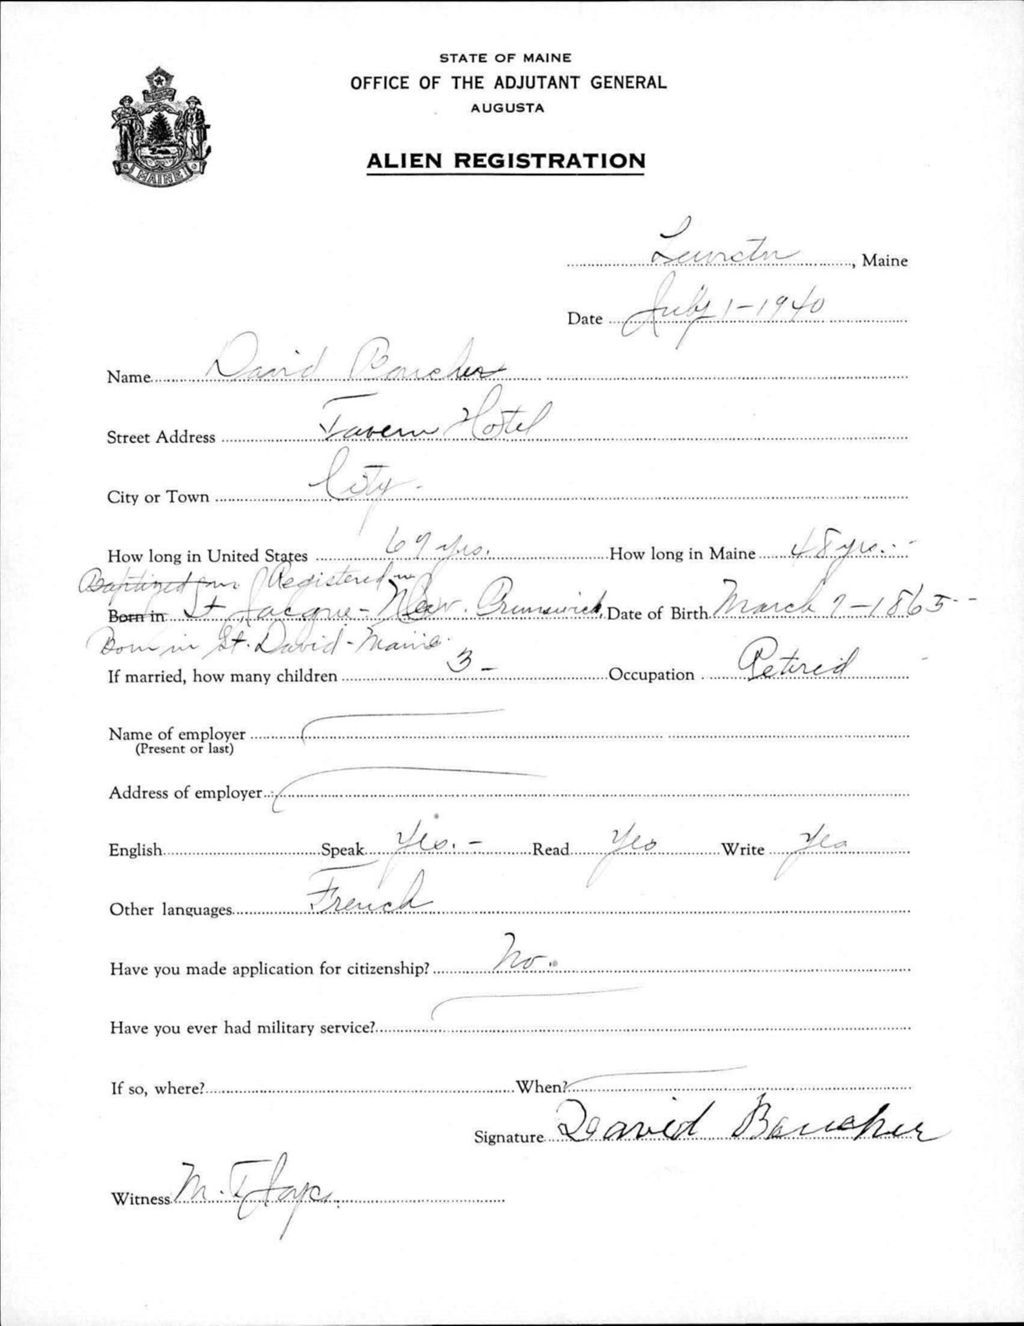 STATE OF MAINE
OFFICE OF THE ADJUTANT GENERAL
AUGUSTA
ALIEN REGISTRATION
MAINE
Lewiston, Maine
Date July 1-1940
Name David Boucher
Street Address Tavern Hotel
City or Town City.
How long in United States 69 yrs. How long in Maine 48 yrs.
Baptized Registered in
Born in St Jacque - New Brunswick, Date of Birth March 7-1865-
Born in St. David - Maine.
If married, how many children 3 - Occupation Retired
Name of employer
(Present or last)
Address of employer
English Speak Yes. - Read Yes Write Yes
Other languages French
Have you made application for citizenship? No.
Have you ever had military service?
If so, where? When?
Signature David Boucher
Witness M.